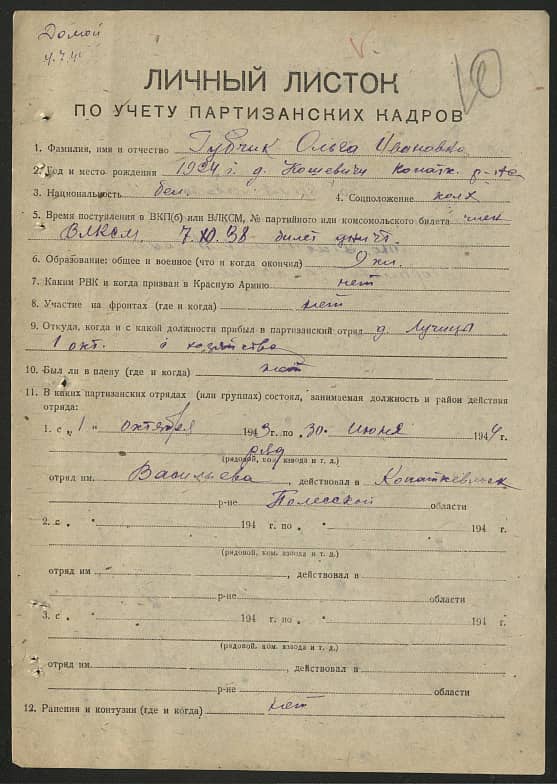 Домой
4.7.45
10
ЛИЧНЫЙ ЛИСТОК
ПО УЧЕТУ ПАРТИЗАНСКИХ КАДРОВ
1. Фамилия, имя и отчество Губчик Ольга Ивановна
2. Год и место рождения 1924 г. д. Кошевичи Копатк. р-на
3. Национальность бел. 4. Соцположение колх
5. Время поступления в ВКП(б) или ВЛКСМ, № партийного или комсомольского билета член
ВЛКСМ. 7.XI.38 билет уничт
6. Образование: общее и военное (что и когда окончил) 9 кл.
7. Каким РВК и когда призван в Красную Армию нет
8. Участие на фронтах (где и когда) нет
9. Откуда, когда и с какой должности прибыл в партизанский отряд д. Лучицы
1 окт. с хозяйства
10. Был ли в плену (где и когда) нет
11. В каких партизанских отрядах (или группах) состоял, занимаемая должность и район действия
отряда:
1. с „ 1 " октября 1943 г. по „ 30 " июня 1944 г.
ряд
(рядовой, ком. взвода и т. д.)
отряд им Васильева, действовал в Копаткевичск
р-не Полесской области
2. с „ " 194 г. по „ " 194 г.
(рядовой, ком. взвода и т. д.)
отряд им , действовал в
р-не области
3. с „ " 194 г. по „ " 194 г.
(рядовой, ком. взвода и т. д.)
отряд им. , действовал в
р-не области
12. Ранения и контузии (где и когда) нет